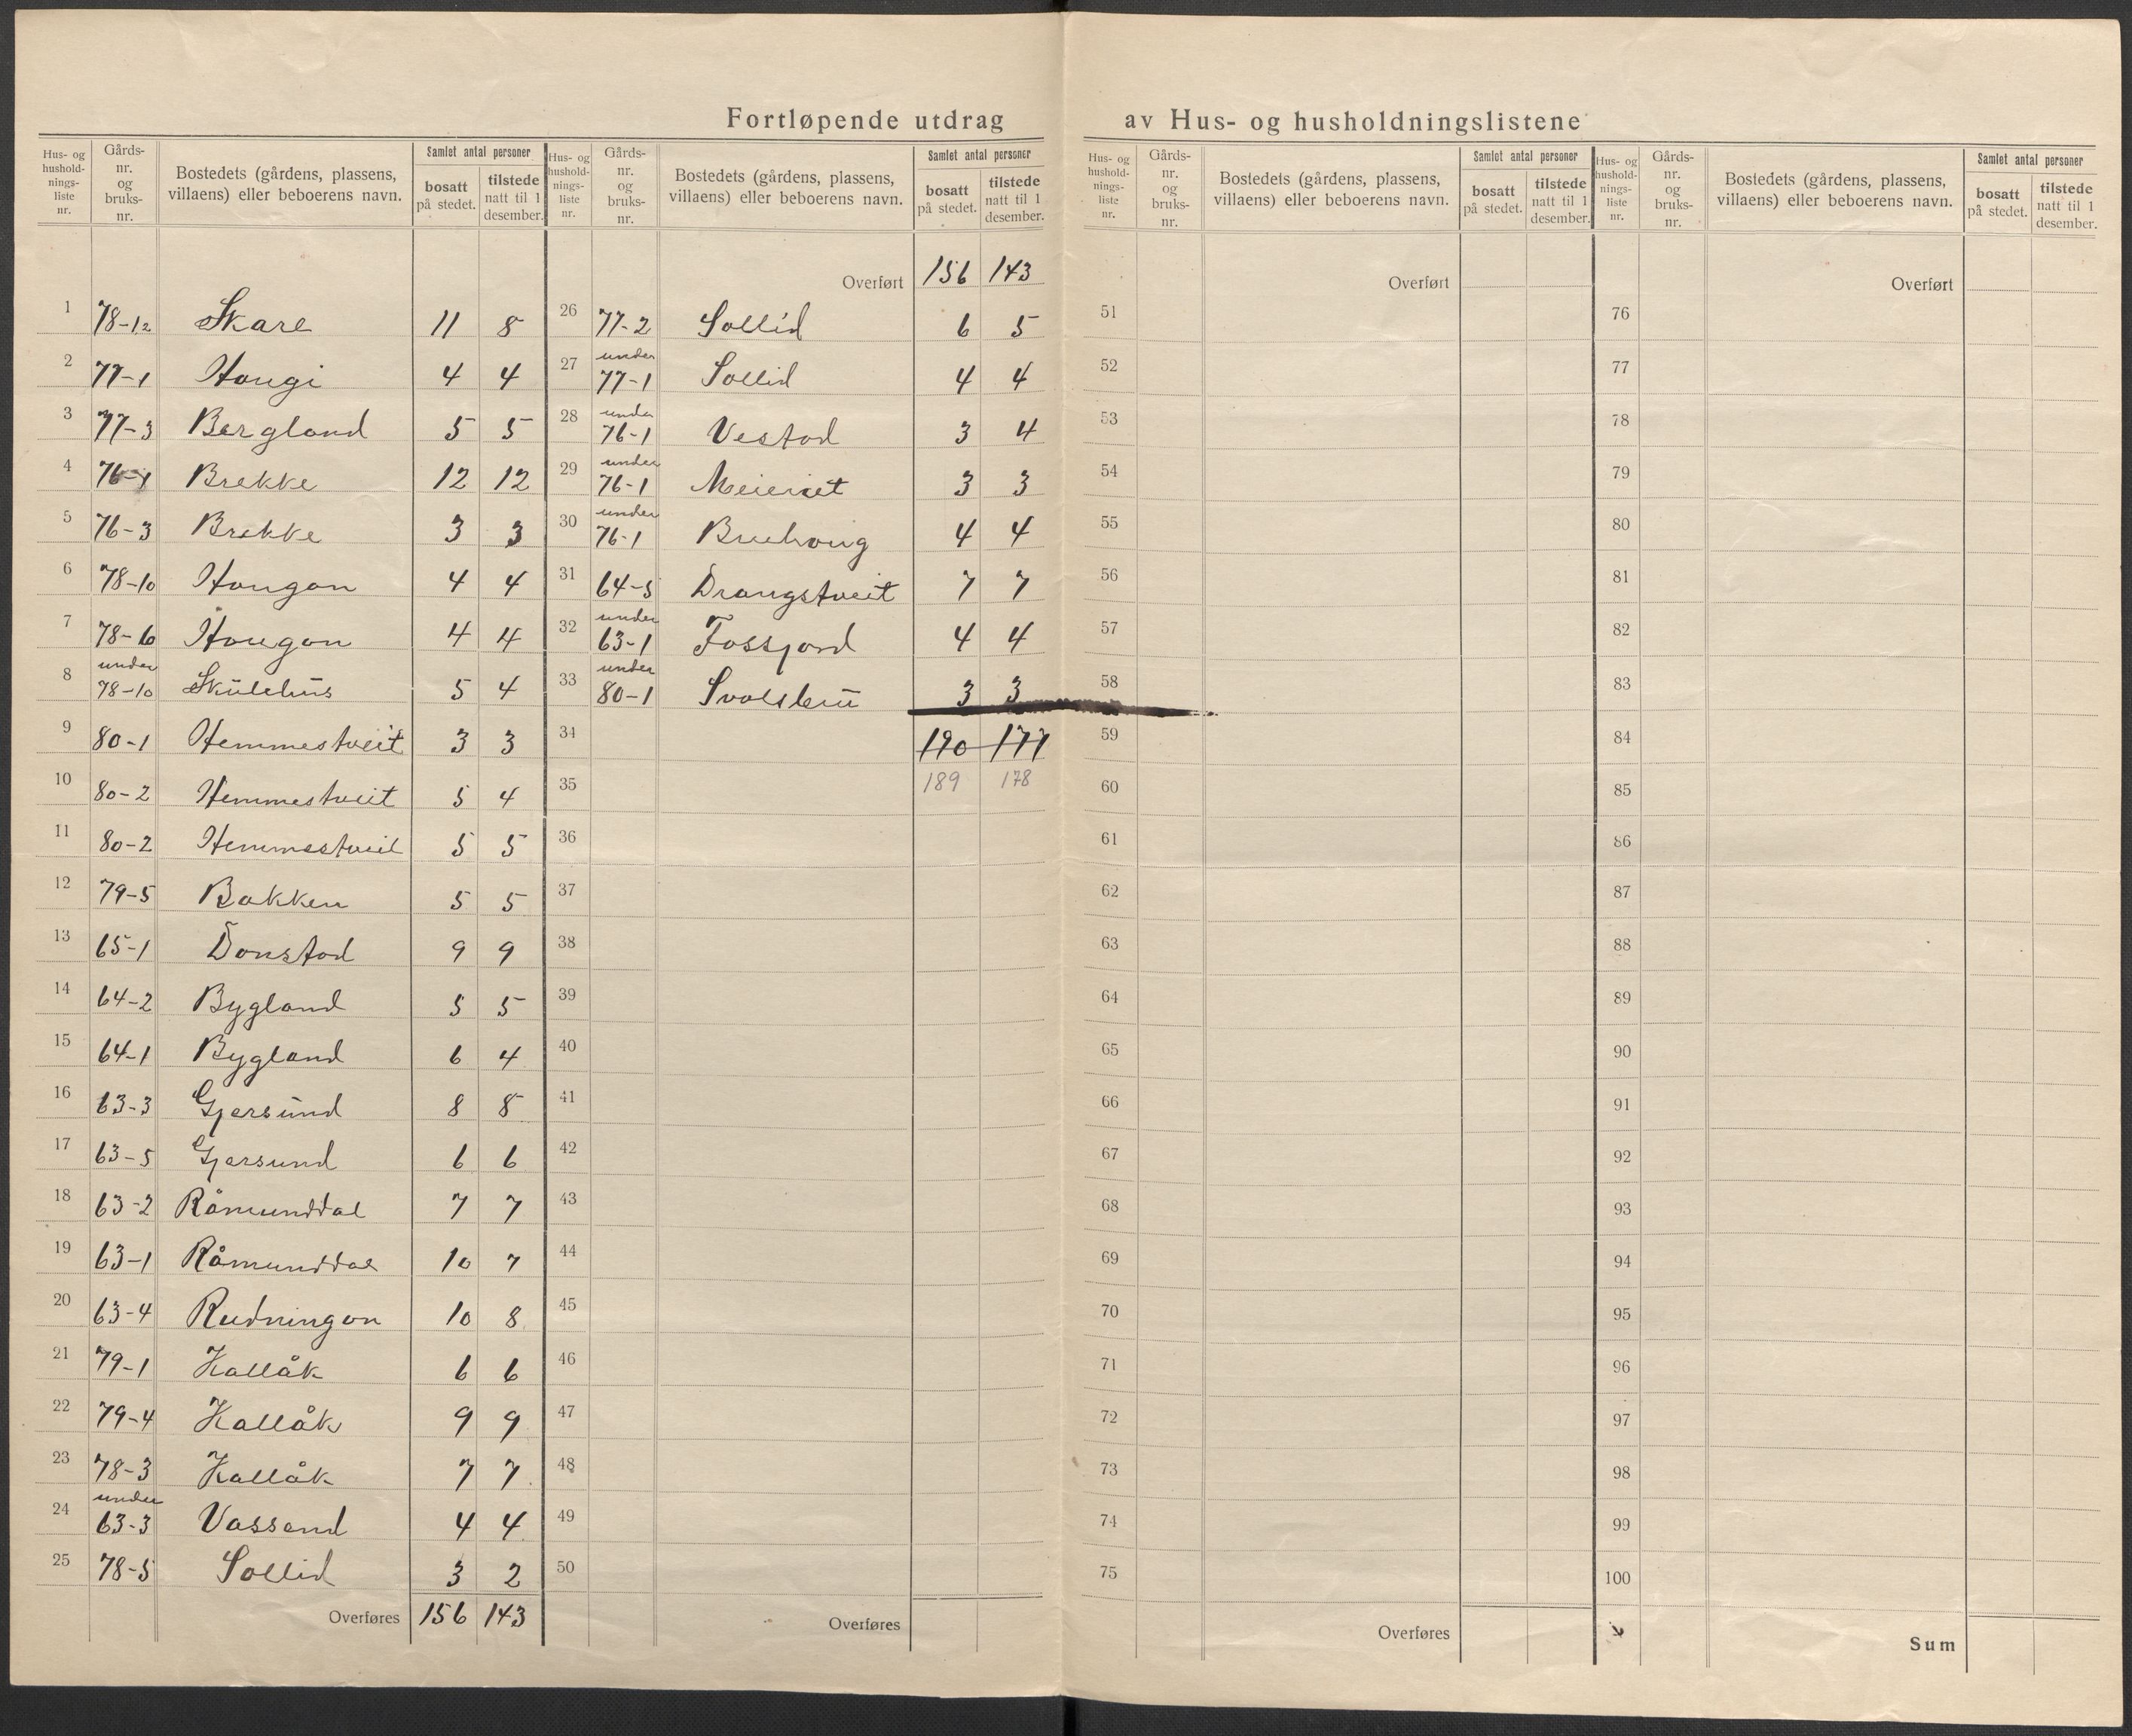 Fortløpende utdrag av Hus- og husholdningslistene
Hus- og hushold-nings-liste nr. Gårds-nr. og bruks-nr. Bostedets (gårdens, plassens, villaens) eller beboerens navn. Samlet antal personer bosatt på stedet. tilstede natt til 1 desember.
1 78-12 Skare 11 8
2 77-1 Haugi 4 4
3 77-3 Bergland 5 5
4 76-1 Brekke 12 12
5 76-3 Brekke 3 3
6 78-10 Haugan 4 4
7 78-6 Haugan 4 4
8 under 78-10 Skülehüs 5 4
9 80-1 Hemmestveit 3 3
10 80-2 Hemmestveit 5 4
11 80-2 Hemmestveit 5 5
12 79-5 Bakken 5 5
13 65-1 Donstad 9 9
14 64-2 Bygland 5 5
15 64-1 Bygland 6 4
16 63-3 Gjersünd 8 8
17 63-5 Gjersund 6 6
18 63-2 Råmunddal 7 7
19 63-1 Råmunddal 10 7
20 63-4 Rudningan 10 8
21 79-1 Kallåk 6 6
22 79-4 Kallåk 9 9
23 78-3 Kallåk 7 7
24 under 63-3 Vassend 4 4
25 78-5 Sollid 3 2
Overføres 156 143
Hus- og hushold-nings-liste nr. Gårds-nr. og bruks-nr. Bostedets (gårdens, plassens, villaens) eller beboerens navn. Samlet antal personer bosatt på stedet. tilstede natt til 1 desember.
Overført 156 143
26 77-2 Sollid 6 5
27 under 77-1 Sollid 4 4
28 under 76-1 Vestad 3 4
29 under 76-1 Meieriet 3 3
30 under 76-1 Bruhaug 4 4
31 64-5 Drangstveit 7 7
32 under 63-1 Fossjord 4 4
33 under 80-1 3 3
34 190 177
35 189 178
36
37
38
39
40
41
42
43
44
45
46
47
48
49
50
Overføres
Hus- og hushold-nings-liste nr. Gårds-nr. og bruks-nr. Bostedets (gårdens, plassens, villaens) eller beboerens navn. Samlet antal personer bosatt på stedet. tilstede natt til 1 desember.
Overført
51
52
53
54
55
56
57
58
59
60
61
62
63
64
65
66
67
68
69
70
71
72
73
74
75
Overføres
Hus- og hushold-nings-liste nr. Gårds-nr. og bruks-nr. Bostedets (gårdens, plassens, villaens) eller beboerens navn. Samlet antal personer bosatt på stedet. tilstede natt til 1 desember.
Overført
76
77
78
79
80
81
82
83
84
85
86
87
88
89
90
91
92
93
94
95
96
97
98
99
100
Sum